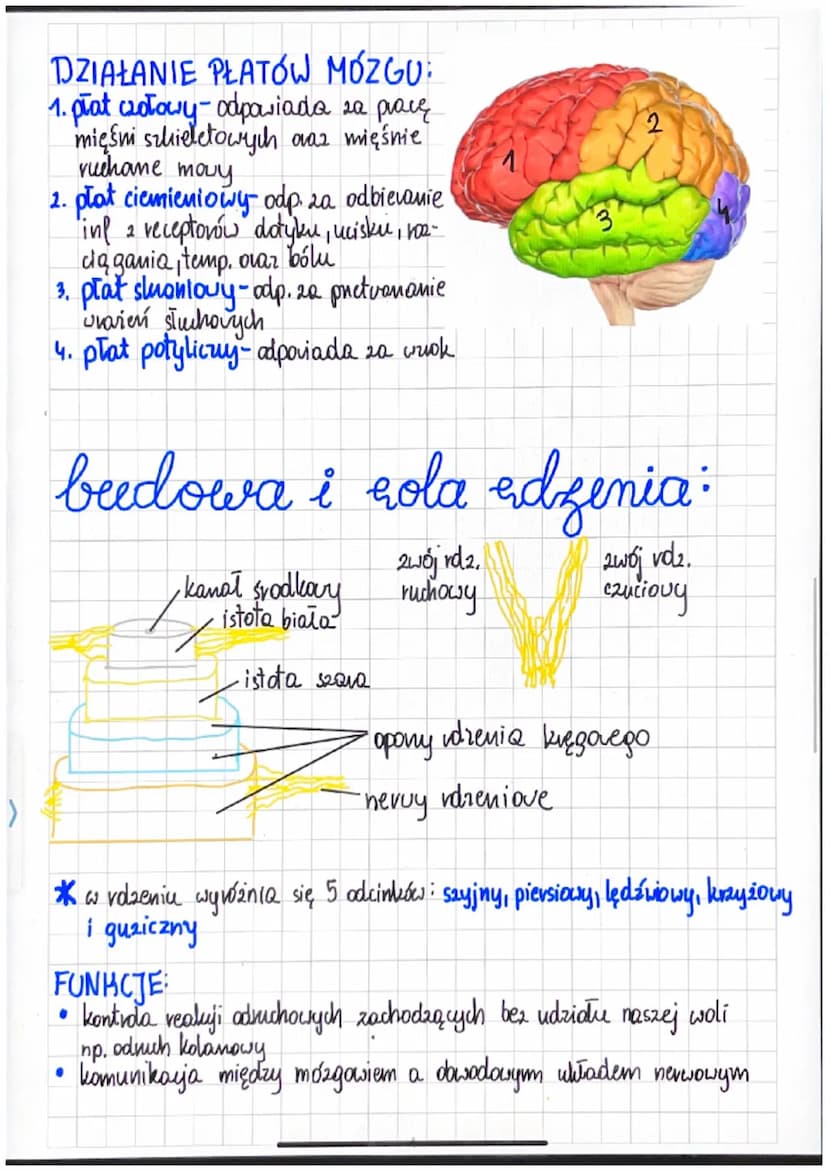 DZIAŁANIE PŁATÓW MÓZGU:
1. płat czołowy - odpowiada za pracę
mięśni szkieletowych oraz mięśnie
ruchome mowy
2. płat ciemieniowy - odp. za odbieranie
inf z receptorów dotyku, ucisku, roz-
ciągania, temp. oraz bólu
3. płat skroniowy - odp. za przetwarzanie
wrażeń słuchowych
4. płat potyliczny - odpowiada za wzrok
1
2
3
4
budowa i rola rdzenia:
kanał środkowy
istota biała
istota szara
opony rdzenia kręgowego
nerwy rdzeniowe
zwój rdz.
ruchowy
zwój rdz.
czuciowy
* w rdzeniu wyróżnia się 5 odcinków: szyjny, piersiowy, lędźwiowy, krzyżowy
i guziczny
FUNKCJE:
• kontrola reakcji odruchowych zachodzących bez udziału naszej woli
np. odruch kolanowy
• komunikacja między mózgowiem a obwodowym układem nerwowym